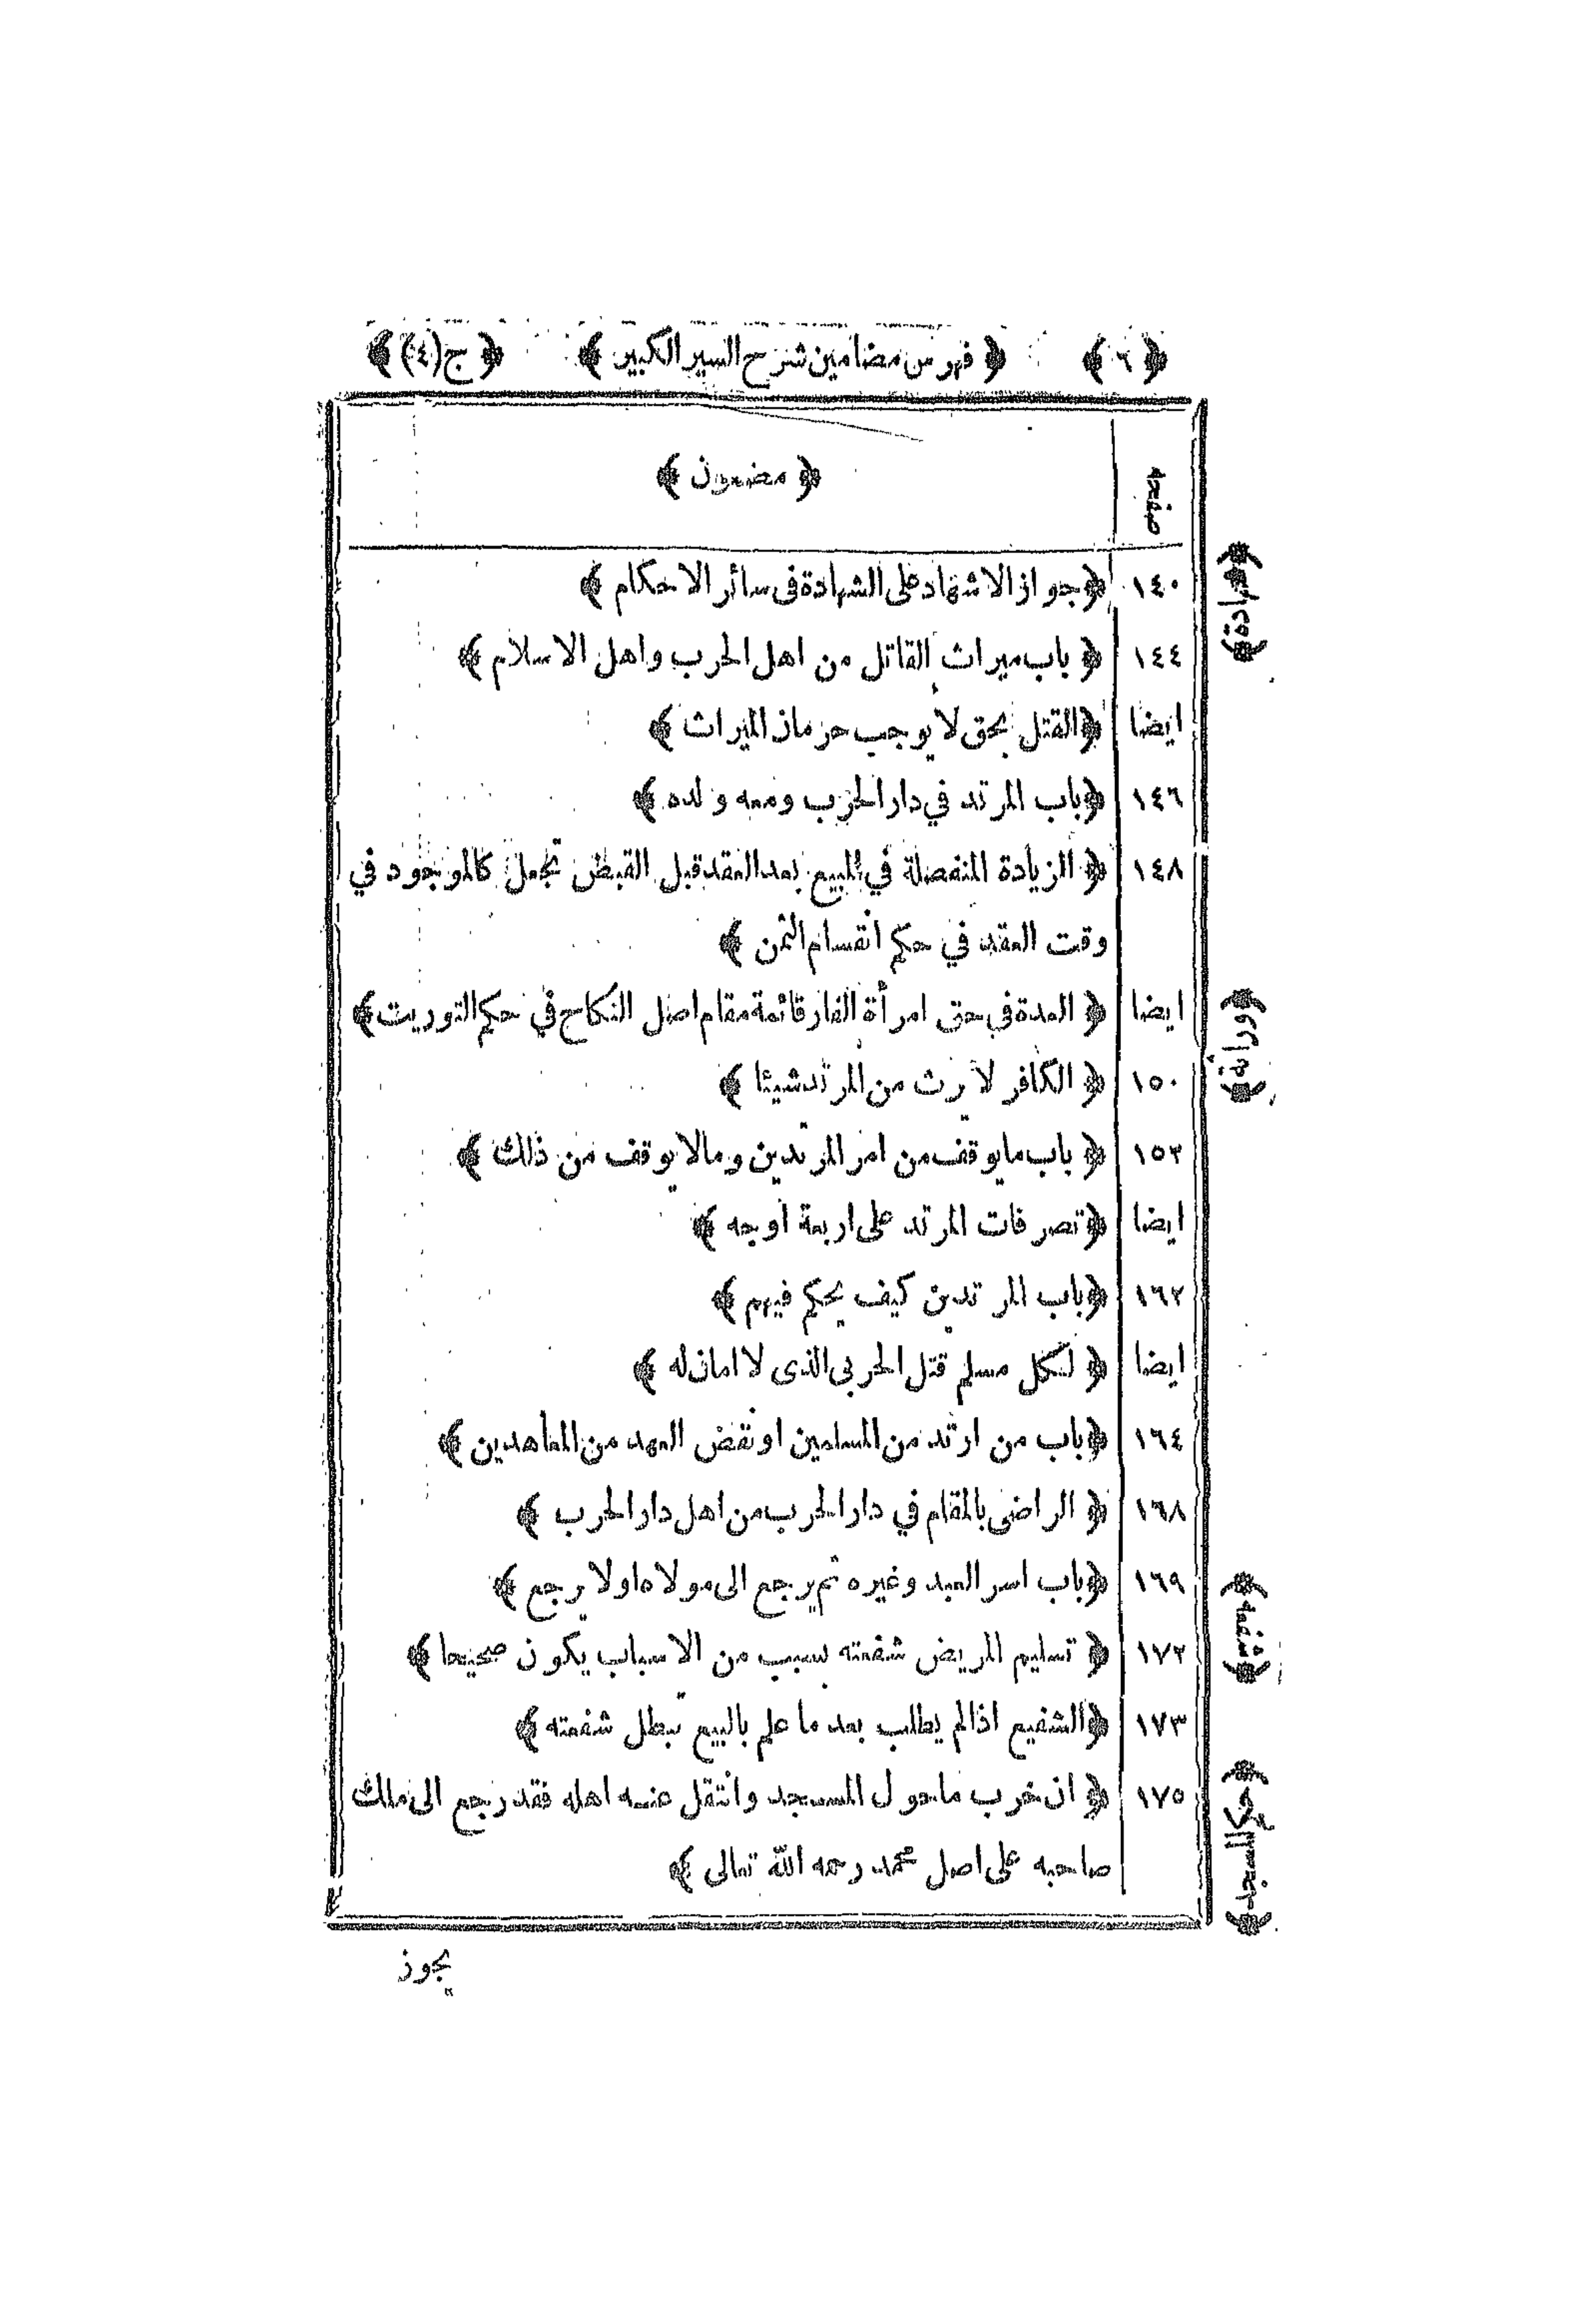 ﴿ ٦ ﴾ ﴿ فهرس مضامين شرح السير الكبير ﴾ ﴿ ج (٤) ﴾
صفحه ﴿ مضمون ﴾
١٤٠ ﴿ جواز الاشهاد على الشهادة فى سائر الاحكام ﴾
﴿ شهادة ﴾
١٤٤ ﴿ باب ميراث القاتل من اهل الحرب واهل الاسلام ﴾
ايضا ﴿ القتل بحق لا يوجب حرمان الميراث ﴾
١٤٦ ﴿ باب المرتد في دار الحرب ومعه ولده ﴾
١٤٨ ﴿ الزيادة المنفصلة في المبيع بعد العقد قبل القبض تجعل كالموجود في
وقت العقد في حكم انقسام الثمن ﴾
ايضا ﴿ العدة في حق امرأة الفار قائمة مقام اصل النكاح في حكم التوريث ﴾
﴿ وراثة ﴾
١٥٠ ﴿ الكافر لا يرث من المرتد شيئا ﴾
١٥٣ ﴿ باب ما يوقف من امر المرتدين وما لا يوقف من ذلك ﴾
ايضا ﴿ تصرفات المرتد على اربعة اوجه ﴾
١٦٢ ﴿ باب المرتدين كيف يحكم فيهم ﴾
ايضا ﴿ لكل مسلم قتل الحربى الذى لا امان له ﴾
١٦٤ ﴿ باب من ارتد من المسلمين او نقض العهد من المعاهدين ﴾
١٦٨ ﴿ الراضى بالمقام في دار الحرب من اهل دار الحرب ﴾
١٦٩ ﴿ باب اسر العبد وغيره ثم يرجع الى مولاه او لا يرجع ﴾
١٧٢ ﴿ تسليم المريض شفعته بسبب من الاسباب يكون صحيحا ﴾
﴿ شفعه ﴾
١٧٣ ﴿ الشفيع اذا لم يطلب بعد ما علم بالبيع تبطل شفعته ﴾
١٧٥ ﴿ ان خرب ما حول المسجد وانتقل عنه اهله فقد رجع الى ملك
صاحبه على اصل محمد رحمه الله تعالى ﴾
﴿ حكم المسجد ﴾
يجوز